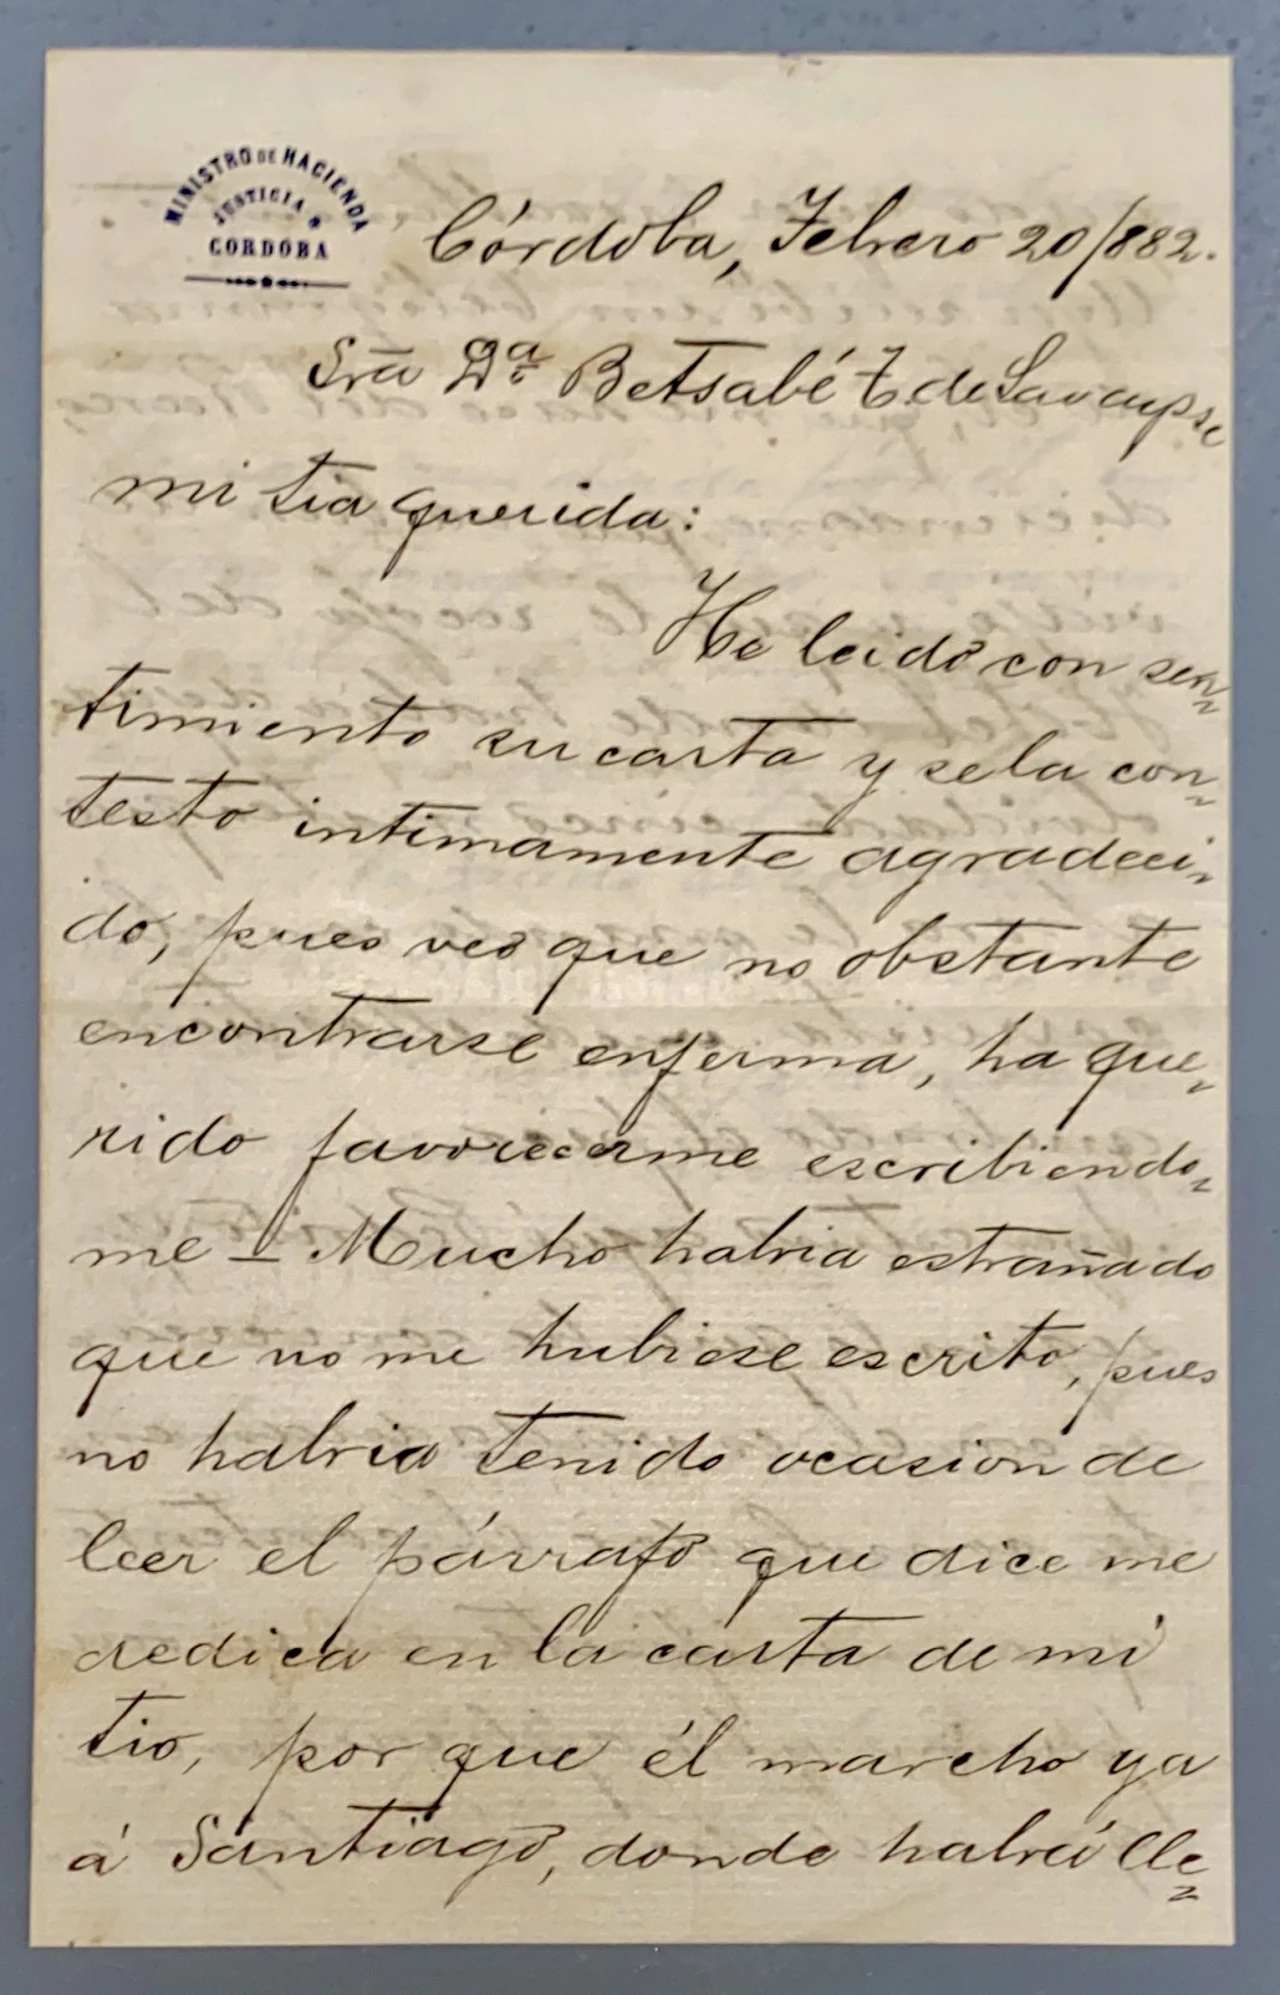 MINISTRO DE HACIENDA
JUSTICIA
CORDOBA
Córdoba, Febrero 20/882.
Sra Da Betsabé T. de
mi tia querida:
He leido con sen=
timiento su carta y se la con=
testo intimamente agradeci=
do, pues veo que no obstante
encontrarse enferma, ha que=
rido favorecerme escribiendo=
me – Mucho habria estrañado
que no me hubiese escrito, pues
no habria tenido ocasion de
leer el párrafo que dice me
dedica en la carta de mi
tio, por que él marcho ya
á Santiago, donde habrá lle=